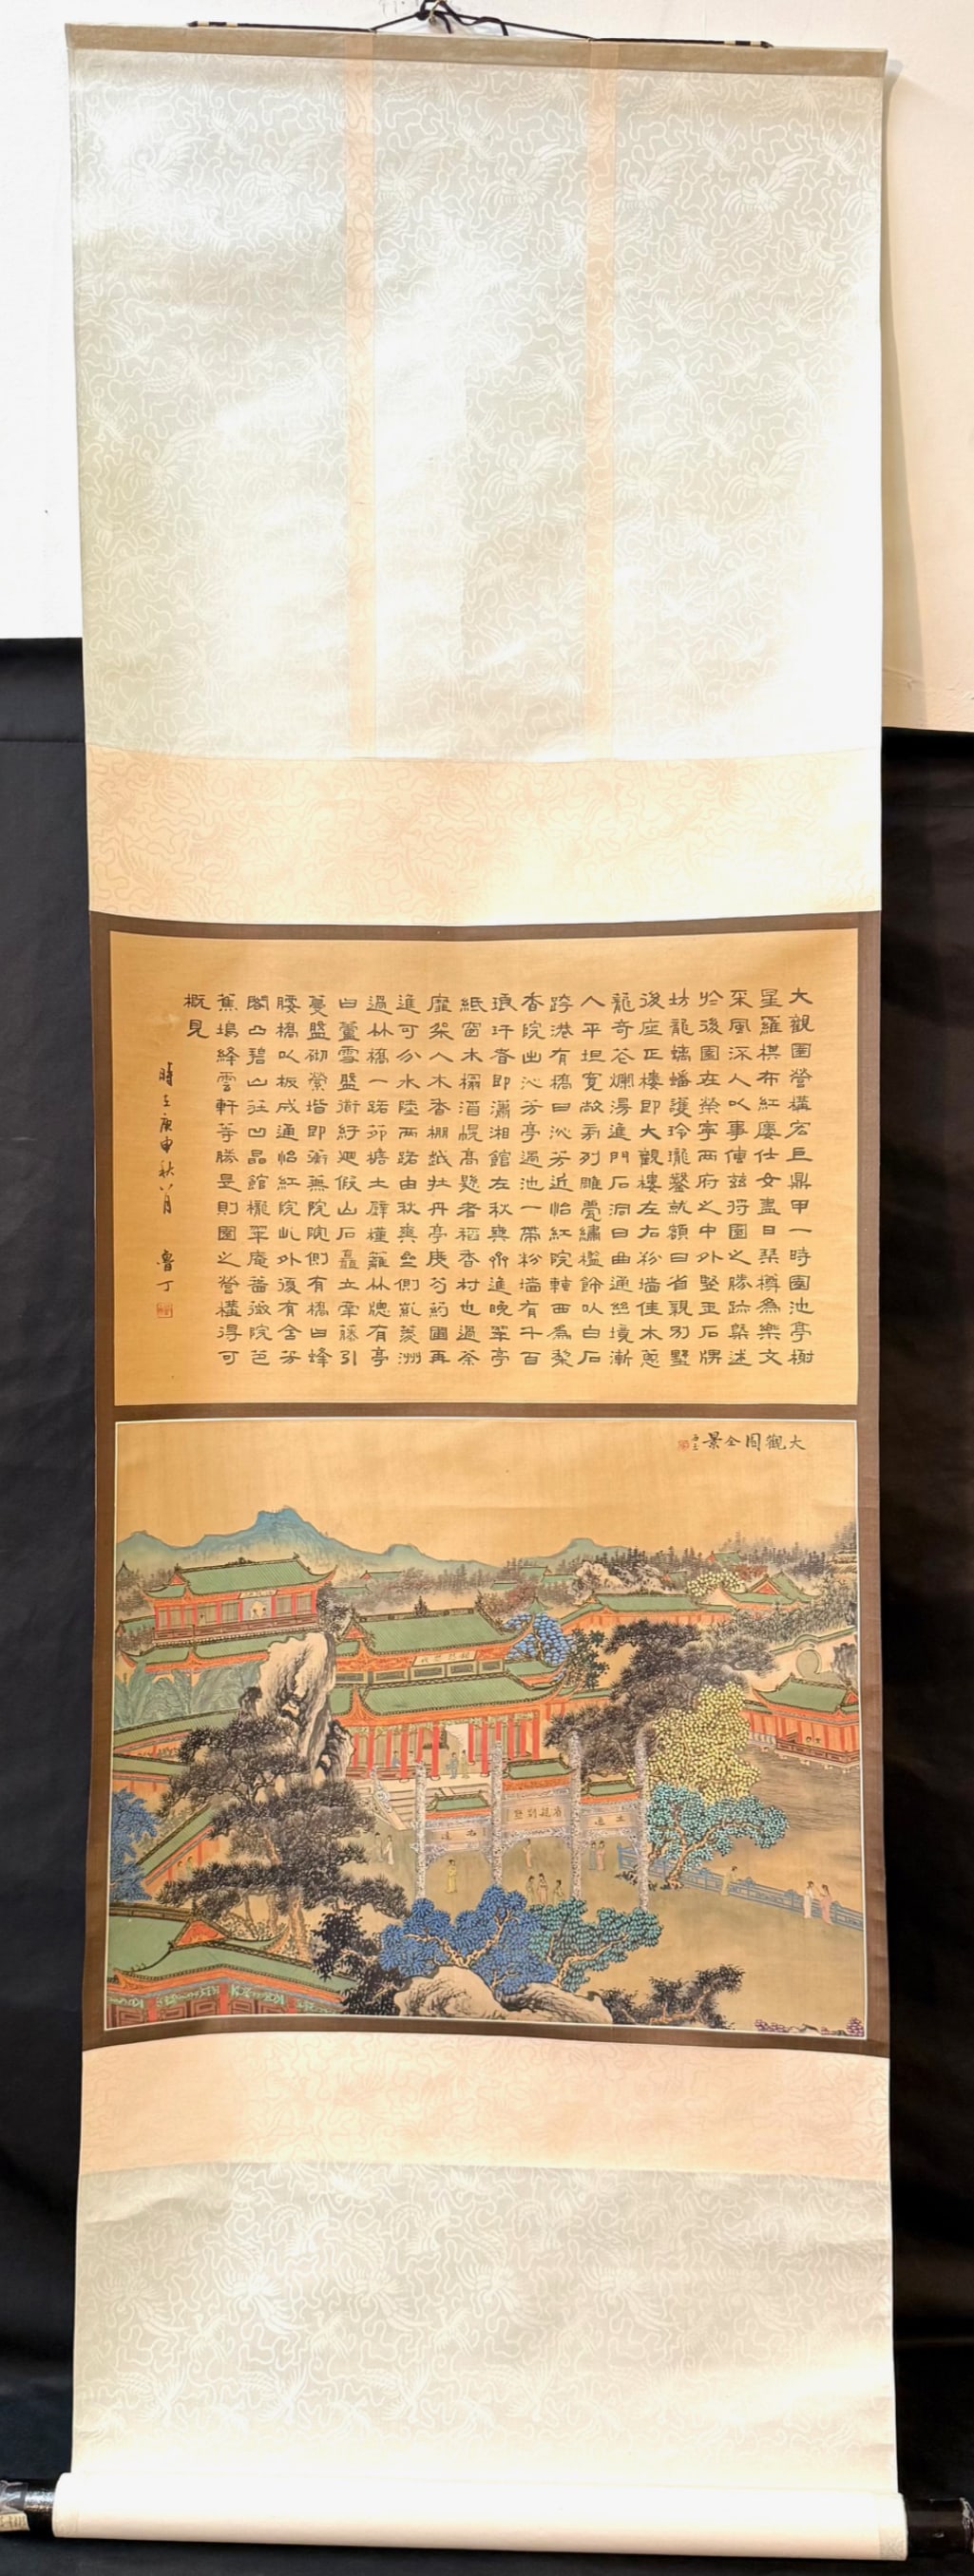 大觀園營構宏巨鼎甲一時園池亭榭
星羅棋布紅廔仕女盡日琹樽為樂文
采風深人以事傳茲將園之勝跡槩述
於後園在榮寧兩府之中外竪玉石牌
坊龍螭蟠護玲瓏鑿就額曰省親別墅
後座正樓即大觀樓左右粉墻佳木蔥
蘢奇花爛漫進門石洞曰曲通幽境漸
人平坦寬敞旁列雕甍繡檻飾以白石
跨港有橋曰沁芳近怡紅院轉西為梨
香院出沁芳亭過池一帶粉墻有千百
琅玕者即瀟湘館左秋爽齋進晚翠亭
紙窗木榻酒幌高懸者稻香村也過荼
蘼架人木香棚越牡丹亭度芍葯圃再
進可分水陸兩路由秋爽壘側凱菱洲
過林橋一路茆檐土壁權蘿林牕有亭
曰蘆雪盤術紆迴假山石矗立牽藤引
蔓盤砌縈堦即蘅蕪院院側有橋曰蜂
腰橋以板成通怡紅院此外復有含芳
閣凸碧山莊凹晶館櫳翠庵薔薇院芭
蕉塢絳雲軒等勝是則園之營構得可
概見
時在庚申秋八月 魯丁
大觀園全景
省親別墅